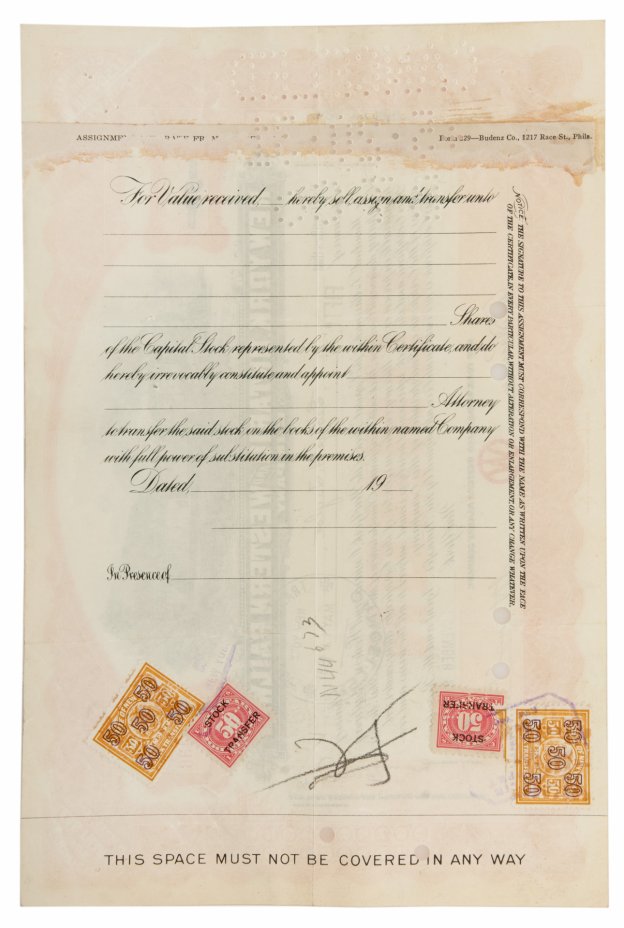 ASSIGNME
Form 229—Budenz Co., 1217 Race St., Phila.
For Value received, hereby sell, assign and transfer unto
Shares
of the Capital Stock represented by the within Certificate, and do
hereby irrevocably constitute and appoint
Attorney
to transfer the said stock on the books of the within named Company
with full power of substitution in the premises.
Dated, 19
In Presence of
NOTICE. THE SIGNATURE TO THIS ASSIGNMENT MUST CORRESPOND WITH THE NAME AS WRITTEN UPON THE FACE
OF THE CERTIFICATE, IN EVERY PARTICULAR, WITHOUT ALTERATION OR ENLARGEMENT, OR ANY CHANGE WHATEVER.
50 50
50
50 50
STOCK
TRANSFER
50
STOCK
TRANSFER
50
50 50
50
50 50
THIS SPACE MUST NOT BE COVERED IN ANY WAY